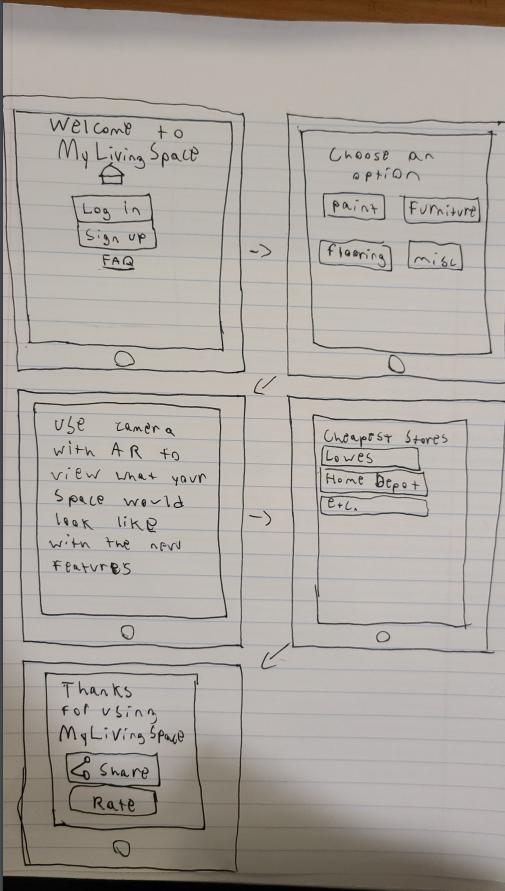 Welcome to
My Living Space
Log in
Sign up
FAQ
Choose an
option
paint
Furniture
flooring
misc
Use camera
with AR to
view what your
space would
look like
with the new
features
Cheapest Stores
Lowes
Home Depot
etc.
Thanks
for using
My Living Space
Share
Rate